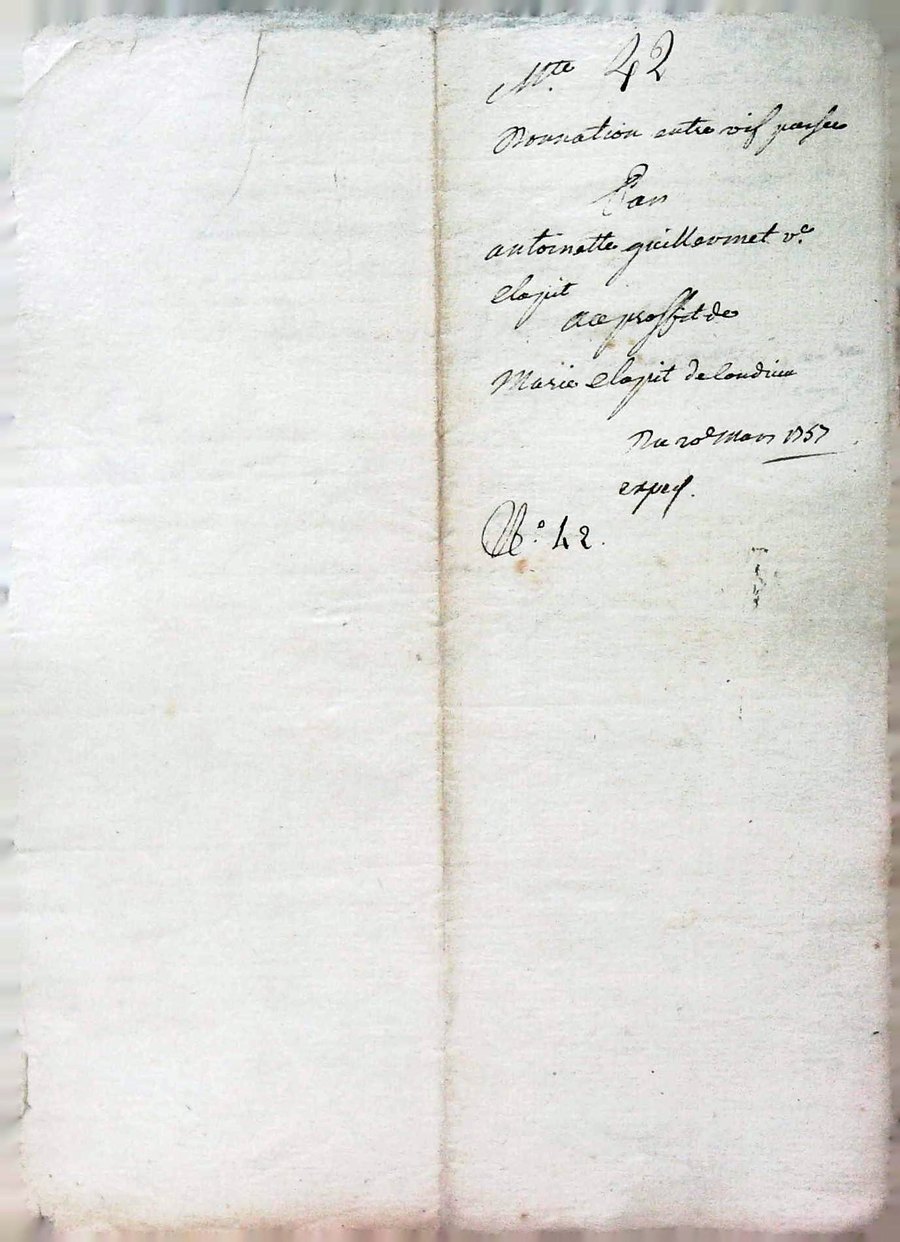 Mte 42
Donnation entre vif passée
Par
antoinette guillermet ve.
clapit
au proffit de
Marie clapit de
Du 20e Mars 1757
exped.
No. 42.